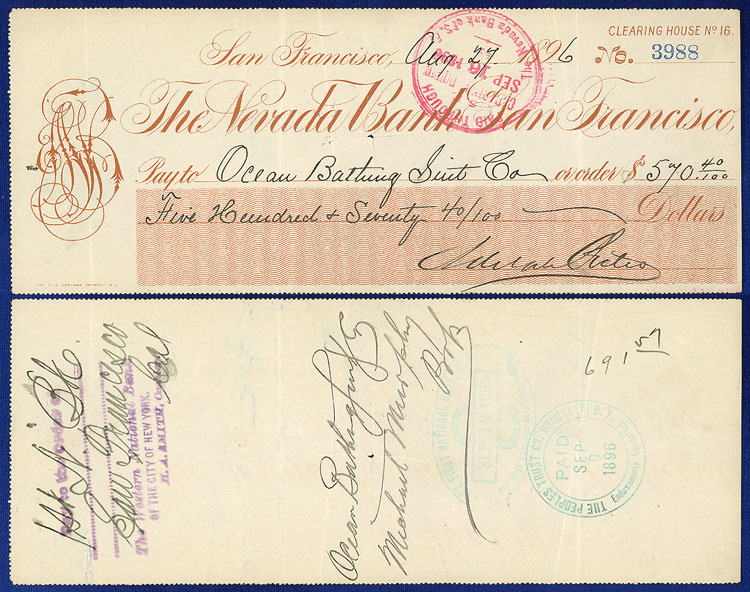 CLEARING HOUSE Nº 16.
San Francisco, Aug 27 1896 No. 3988
The Nevada Bank of San Francisco,
Pay to Ocean Bathing Suit Co or order $ 570 40/100
Five Hundred & Seventy 40/100 Dollars
PAID THROUGH
SEP 16 1896
The Nevada Bank of S. F.
1st N. Bk.
San Francisco
Cal
Pay to the order of
The Western National Bank
OF THE CITY OF NEW YORK.
H. A. SMITH, Cashier
Ocean Bathing Suit Co
Michael Murphy
THE FIRST NATIONAL BANK
SEP
691 57
THE PEOPLES TRUST CO. BROOKLYN, N. Y.
PAID
SEP
9
1896
Endorsements Guaranteed